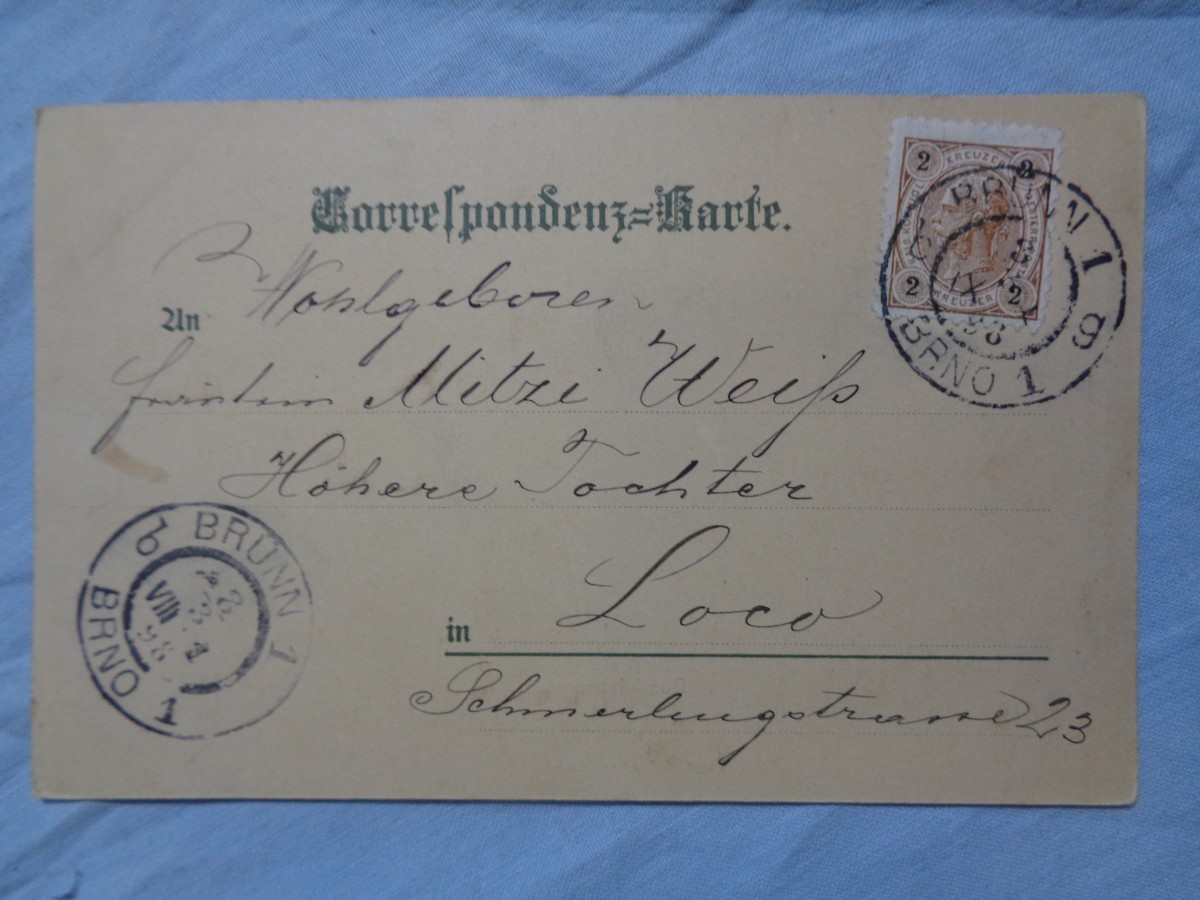 Correspondenz=Karte.
2 KREUZER 2
2 KREUZER 2
BRÜNN 1
BRNO 1
98
An Wohlgeboren
Fräulein Mitzi Weiß
Höhere Tochter
in Loco
Schmerlingstrasse 23
BRÜNN 1
BRNO 1
VIII
98